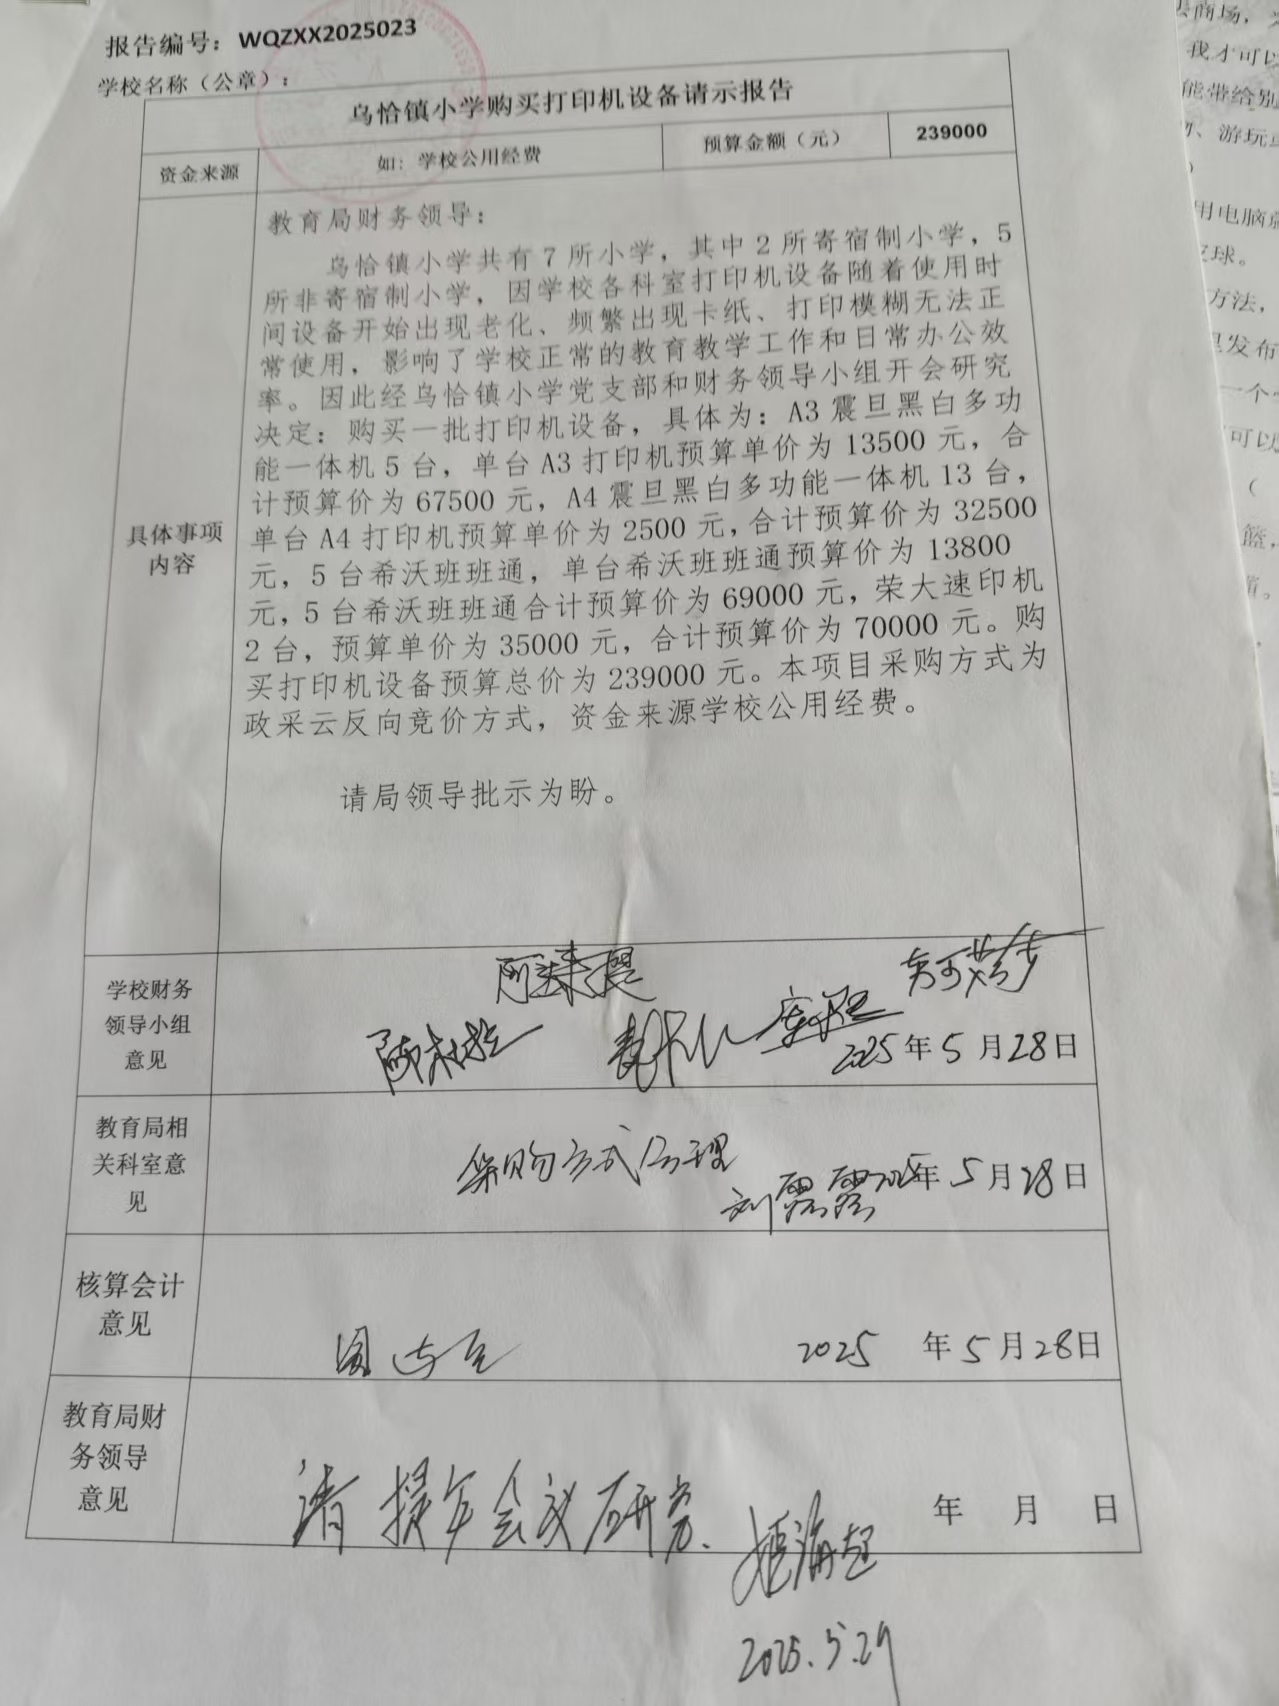 报告编号：WQZXX2025023
学校名称（公章）：
乌恰镇小学购买打印机设备请示报告
资金来源 如：学校公用经费 预算金额（元） 239000
具体事项
内容
教育局财务领导：
乌恰镇小学共有7所小学，其中2所寄宿制小学，5
所非寄宿制小学，因学校各科室打印机设备随着使用时
间设备开始出现老化、频繁出现卡纸、打印模糊无法正
常使用，影响了学校正常的教育教学工作和日常办公效
率。因此经乌恰镇小学党支部和财务领导小组开会研究
决定：购买一批打印机设备，具体为：A3震旦黑白多功
能一体机5台，单台A3打印机预算单价为13500元，合
计预算价为67500元，A4震旦黑白多功能一体机13台，
单台A4打印机预算单价为2500元，合计预算价为32500
元，5台希沃班班通，单台希沃班班通预算价为13800
元，5台希沃班班通合计预算价为69000元，荣大速印机
2台，预算单价为35000元，合计预算价为70000元。购
买打印机设备预算总价为239000元。本项目采购方式为
政采云反向竞价方式，资金来源学校公用经费。
请局领导批示为盼。
学校财务
领导小组
意见
2025年5月28日
教育局相
关科室意
见
采购方式合理
刘露露 2025年5月28日
核算会计
意见
2025 年5月28日
教育局财
务领导
意见
请提年会议研究.
年 月 日
2025.5.29
商场，
我才可以
能带给别
、游玩
用电脑
球。
方法，
发布
一个
可以
篮，